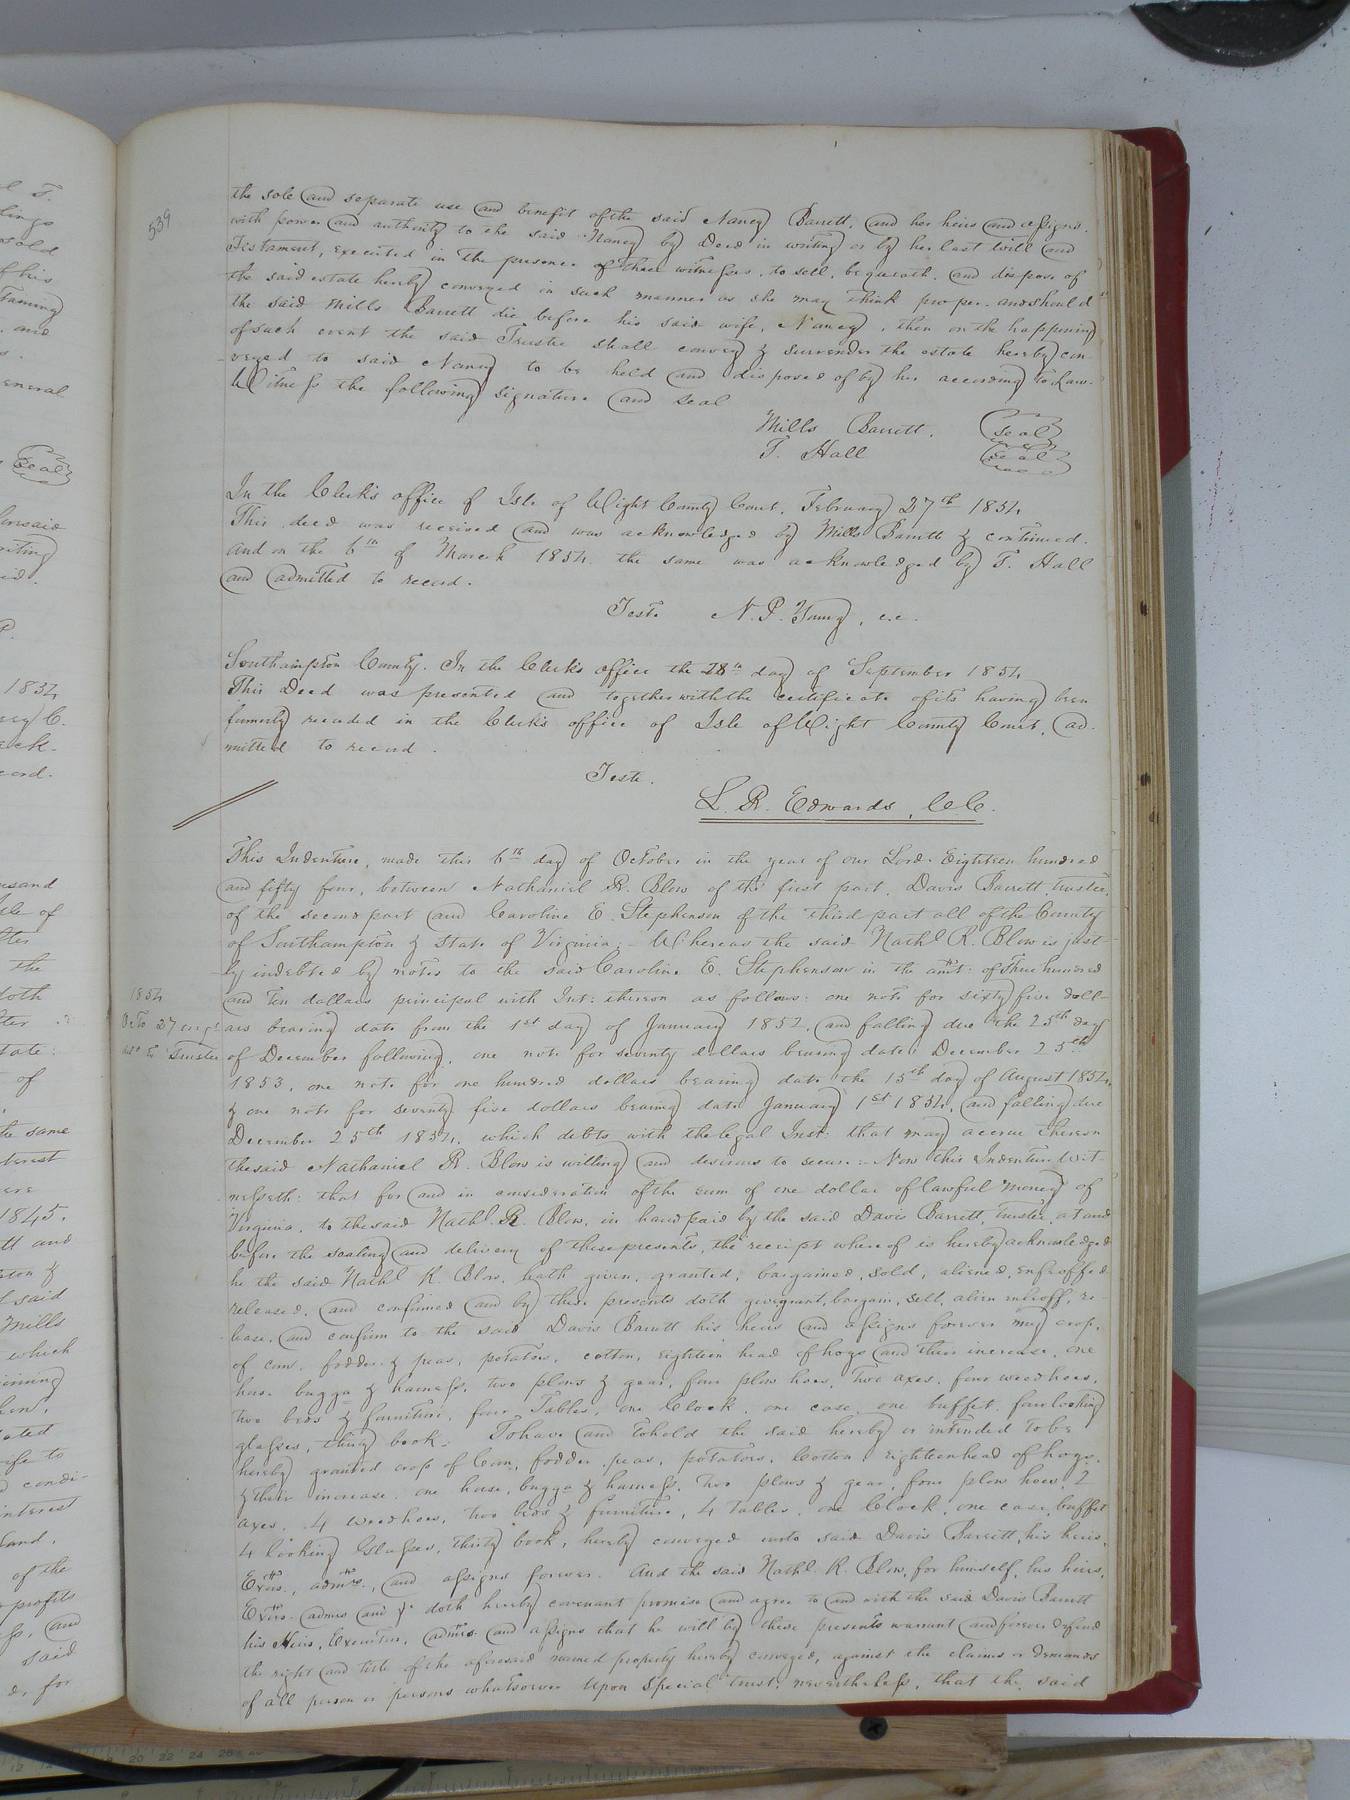 539
the sole and separate use and benefit of the said Nancy Barrett, and her heirs and assigns.
with power and authority to the said Nancy by Deed in writing or by her last will and
Testament, executed in the presence of three witnesses, to sell, bequeath, and dispose of
the said estate hereby conveyed in such manner as she may think proper. and should
the said Mills Barrett die before his said wife, Nancy, then on the happening
of such event the said Trustee shall convey & surrender the estate hereby con-
veyed to said Nancy to be held and disposed of by her according to Law.
Witness the following signature and seal
Mills Barrett. Seal
T. Hall Seal
In the Clerk's office of Isle of Wight County Court, February 27th 1854
This deed was received and was acknowledged by Mills Barrett & continued.
and on the 6th of March 1854. the same was acknowledged by T. Hall
and admitted to record.
Teste N. P. Young, c.c.
Southampton County. In the Clerk's office the 28th day of September 1854
This Deed was presented and together with the certificate of its having been
formerly recorded in the Clerk's office of Isle of Wight County Court, ad-
mitted to record.
Teste.
L. R. Edwards, C.C.
This Indenture, made this 6th day of October in the year of our Lord Eighteen hundred
and fifty four, between Nathaniel R. Blow of the first part, Davis Barrett, trustee,
of the second part and Caroline E. Stephenson of the third part all of the County
of Southampton & State of Virginia:- Whereas the said Nathl R. Blow is just-
ly indebted by notes to the said Caroline E. Stephenson in the amt: of Three hundred
and Ten dollars principal with Int: thereon as follows: one note for sixty five doll-
1854
Octo 27
to Trustee
ars bearing date from the 1st day of January 1852, and falling due the 25th day
of December following, one note for seventy dollars bearing date December 25th
1853, one note for one hundred dollars bearing date the 15th day of August 1854,
& one note for seventy five dollars bearing date January 1st 1854, and falling due
December 25th 1854, which debts with the legal Inst: that may accrue thereon
the said Nathaniel R. Blow is willing and desirous to secure:- Now this Indenture Wit-
nesseth: that for and in consideration of the sum of one dollar of lawful money of
Virginia, to the said Nathl. R. Blow, in hand paid by the said Davis Barrett, trustee, at and
before the sealing and delivery of these presents, the receipt whereof is hereby acknowledged
he the said Nathl R. Blow, hath given, granted, bargained, sold, aliened, enfeoffed
released, and confirmed and by these presents doth give grant, bargain, sell, alien enfeoff, re-
lease, and confirm to the said Davis Barrett his heirs and assigns forever my crop,
of corn, fodder & peas, potatoes, cotton, eighteen head of hogs and their increase, one
horse buggy & harness, two plows & gear, four plow hoes, two axes, four weed hoes,
two beds & furniture, four Tables, one Clock, one case, one buffet, four looking
glasses, thirty book. To have and to hold the said hereby or intended to be
hereby granted crop of Corn, fodder, peas, potatoes, Cotton, eighteen head of hogs,
& their increase, one horse, buggy & harness, two plows & gear, four plow hoes, 2
axes, 4 weed hoes, two beds & furniture, 4 tables, one Clock, one case, buffet
4 looking Glasses, thirty book, hereby conveyed unto said Davis Barrett, his heirs,
Exors., admrs., and assigns forever. And the said Nathl R. Blow, for himself, his heirs,
Exors. admrs and doth hereby covenant promise and agree to and with the said Davis Barrett
his Heirs, Executors, admrs. and assigns that he will by these presents warrant and forever defend
the right and title of the aforesaid named property hereby conveyed, against the claims or demands
of all person or persons whatsoever Upon Special trust, nevertheless, that the said